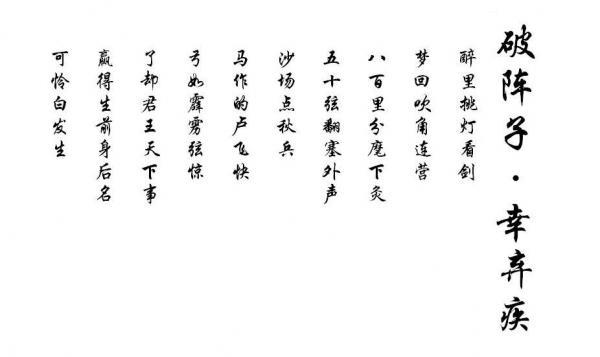 破阵子·幸弃疾
醉里挑灯看剑
梦回吹角连营
八百里分麾下灸
五十弦翻塞外声
沙场点秋兵
马作的卢飞快
弓如霹雳弦惊
了却君王天下事
赢得生前身后名
可怜白发生